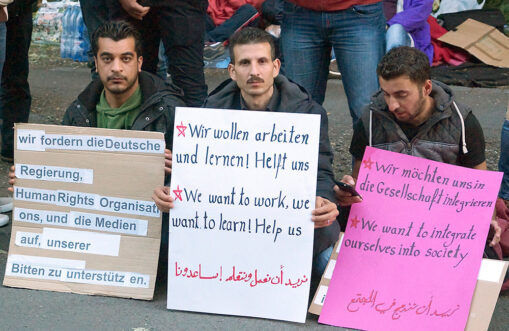 wir fordern dieDeutsche
Regierung,
Human Rights Organisati
ons, und die Medien
auf, unserer
Bitten zu unterstütz en.
Wir wollen arbeiten
und lernen! Helft uns
We want to work, we
want to learn! Help us
نريد أن نعمل ونتعلم! ساعدونا
Wir möchten uns in
die Gesellschaft integrieren
We want to integrate
ourselves into society
نريد أن نندمج في المجتمع